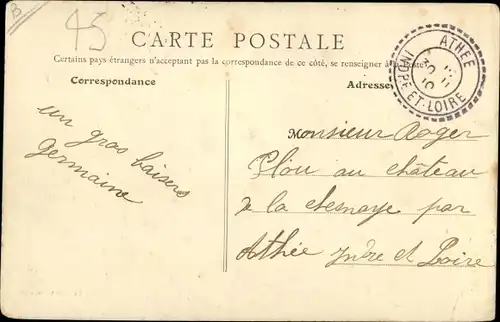 B
45
CARTE POSTALE
Certains pays étrangers n'acceptant pas la correspondance de ce côté, se renseigner à la Poste
Correspondance
Adresse
ATHÉE
INDRE-ET-LOIRE
un gros baisers
Germaine
Monsieur Roger
Plou au château
de la chesnaye par
Athée Indre et Loire